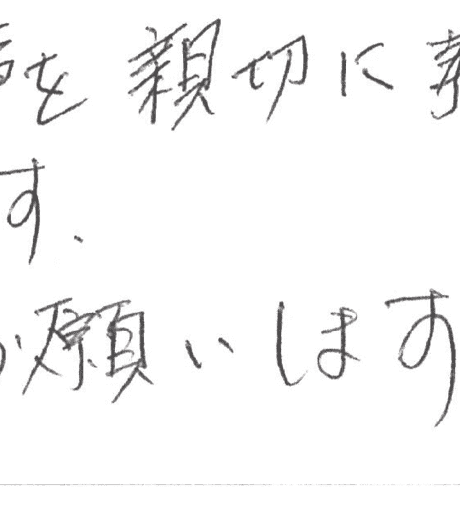 を親切に
す、
願いします